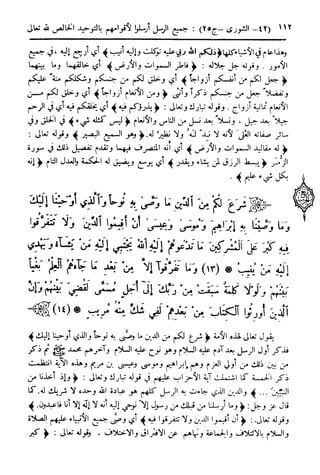 ١١٢ (٤٢- الشورى -ج٢٥) : جميع الرسل أرسلوا لأقوامهم بالتوحيد الخالص لله تعالى
وهذا عام في الأشياء كلها ﴿ذلكم الله ربي عليه توكلت وإليه أنيب﴾ أي أرجع إليه ، في جميع
الأمور . وقوله جل جلاله : ﴿فاطر السموات والأرض﴾ أي خالقهما وما بينهما
﴿جعل لكم من أنفسكم أزواجاً﴾ أي وخلق لكم من جنسكم وشكلكم منة عليكم
وتفضلاً جعل من جنسكم ذكراً وأنثى ﴿ومن الأنعام أزواجاً﴾ أي وخلق لكم من
الأنعام ثمانية أزواج . وقوله تبارك وتعالى : ﴿يذرؤكم فيه﴾ أي يخلقكم فيه أي في الرحم
جيلاً بعد جيل ، ونسلاً بعد نسل من الناس والأنعام ﴿ليس كمثله شيء﴾ في الخلق وفي
سائر صفاته العلى لأنه لا ند له ولا نظير له. ﴿وهو السميع البصير﴾ وقوله تعالى :
﴿له مقاليد السموات والأرض﴾ أي أنه المتصرف فيهما وتقدم تفصيل ذلك في سورة
الزمر ﴿يبسط الرزق لمن يشاء ويقدر﴾ أي يوسع ويضيق له الحكمة والعدل التام ﴿إنه
بكل شيء عليم﴾ .
شَرَعَ لَكُم مِّنَ الدِّينِ مَا وَصَّىٰ بِهِ نُوحًا وَالَّذِي أَوْحَيْنَا إِلَيْكَ
وَمَا وَصَّيْنَا بِهِ إِبْرَاهِيمَ وَمُوسَىٰ وَعِيسَىٰ أَنْ أَقِيمُوا الدِّينَ وَلَا تَتَفَرَّقُوا
فِيهِ كَبُرَ عَلَى الْمُشْرِكِينَ مَا تَدْعُوهُمْ إِلَيْهِ اللَّهُ يَجْتَبِي إِلَيْهِ مَن يَشَاءُ وَيَهْدِي
إِلَيْهِ مَن يُنِيبُ (١٣) وَمَا تَفَرَّقُوا إِلَّا مِن بَعْدِ مَا جَاءَهُمُ الْعِلْمُ بَغْيًا
بَيْنَهُمْ وَلَوْلَا كَلِمَةٌ سَبَقَتْ مِن رَّبِّكَ إِلَىٰ أَجَلٍ مُّسَمًّى لَّقُضِيَ بَيْنَهُمْ وَإِنَّ
الَّذِينَ أُورِثُوا الْكِتَابَ مِن بَعْدِهِمْ لَفِي شَكٍّ مِّنْهُ مُرِيبٍ (١٤)
يقول تعالى لهذه الأمة ﴿شرع لكم من الدين ما وصى به نوحاً والذي أوحينا إليك﴾
فذكر أول الرسل بعد آدم عليه السلام وهو نوح عليه السلام وآخرهم محمد ﷺ ثم ذكر
من بين ذلك من أولي العزم وهم إبراهيم وموسى وعيسى بن مريم وهذه الآية انتظمت
ذكر الخمسة كما اشتملت آية الأحزاب عليهم في قوله تبارك وتعالى : ﴿وإذ أخذنا من
النبيين ... ﴾ والدين الذي جاءت به الرسل كلهم هو عبادة الله وحده لا شريك له، كما
قال عز وجل: ﴿وما أرسلنا من قبلك من رسول إلا نوحي إليه أنه لا إله إلا أنا فاعبدون.﴾
وقوله تعالى: ﴿أن أقيموا الدين ولا تتفرقوا فيه﴾ أي وصى جميع الأنبياء عليهم الصلاة
والسلام بالائتلاف والجماعة ونهاهم عن الافتراق والاختلاف . وقوله تعالى : ﴿كبر